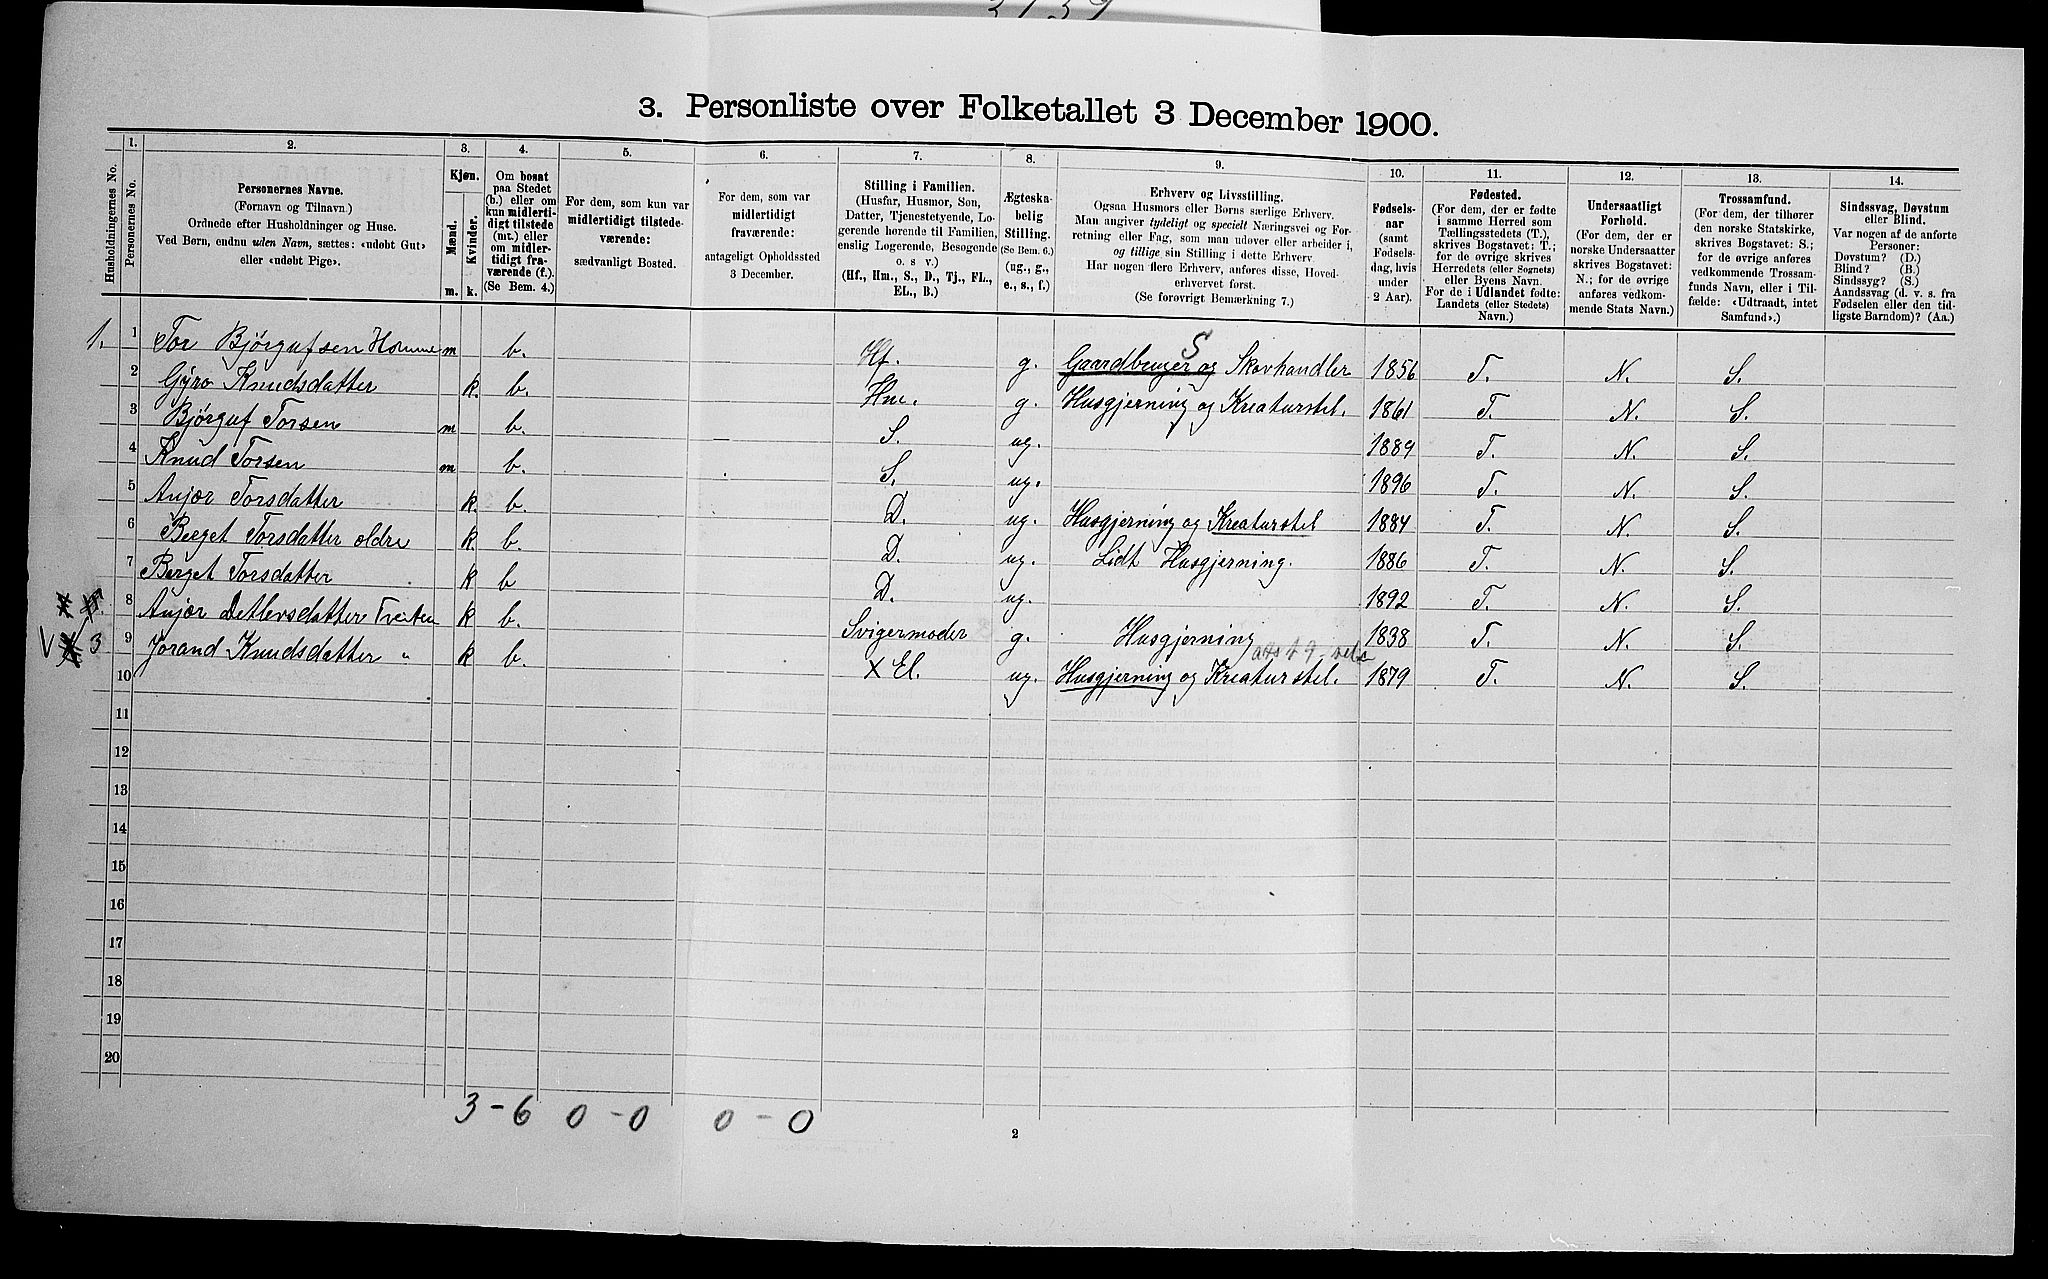 3. Personliste over Folketallet 3 December 1900.
Husholdningernes No.
1.
Personernes No.
2.
Personernes Navne.
(Fornavn og Tilnavn.)
Ordnede efter Husholdninger og Huse.
Ved Børn, endnu uden Navn, sættes: «udøbt Gut»
eller «udøbt Pige».
3.
Kjøn.
Mænd.
Kvinder.
m. k.
4.
Om bosat
paa Stedet
(b.) eller om
kun midlerti-
digt tilstede
(mt.) eller
om midler-
tidigt fra-
værende (f.).
(Se Bem. 4.)
5.
For dem, som kun var
midlertidigt tilstede-
værende:
sædvanligt Bosted.
6.
For dem, som var
midlertidigt
fraværende:
antageligt Opholdssted
3 December.
7.
Stilling i Familien.
(Husfar, Husmor, Søn,
Datter, Tjenestetyende, Lo-
gerende hørende til Familien,
enslig Logerende, Besøgende
o. s v.)
(Hf., Hm., S., D., Tj., FL.,
EL., B.)
8.
Ægteska-
belig
Stilling.
(Se Bem. 6.)
(ug., g.,
e., s., f.)
9.
Erhverv og Livsstilling.
Ogsaa Husmors eller Børns særlige Erhverv.
Man angiver tydeligt og specielt Næringsvei og For-
retning eller Fag, som man udøver eller arbeider i,
og tillige sin Stilling i dette Erhverv.
Har nogen flere Erhverv, anføres disse, Hoved-
erhvervet først.
(Se forøvrigt Bemærkning 7.)
10.
Fødsels-
aar
(samt
Fødsels-
dag, hvis
under
2 Aar).
11.
Fødested.
(For dem, der er fødte
i samme Herred som
Tællingsstedets (T.),
skrives Bogstavet: T.;
for de øvrige skrives
Herredets (eller Sognets)
eller Byens Navn.
For de i Udlandet fødte:
Landets (eller Stedets)
Navn.)
12.
Undersaatligt
Forhold.
(For dem, der er
norske Undersaatter
skrives Bogstavet:
N.; for de øvrige
anføres vedkom-
mende Stats Navn.)
13.
Trossamfund.
(For dem, der tilhører
den norske Statskirke,
skrives Bogstavet: S.;
for de øvrige anføres
vedkommende Trossam-
funds Navn, eller i Til-
fælde: «Udtraadt, intet
Samfund».)
14.
Sindssvag, Døvstum
eller Blind.
Var nogen af de anførte
Personer:
Døvstum? (D.)
Blind? (B.)
Sindssyg? (S.)
Aandssvag (d. v. s. fra
Fødselen eller den tid-
ligste Barndom)? (Aa.)
S
1. 1 Tor Bjørgufsen Homme m b. Hf. g. Gaardbruger og Skovhandler 1856 T. N. S.
2 Gyro Knudsdatter k. b. Hm. g. Husgjerning og Kreaturstel. 1861 T. N. S.
3 Bjørguf Torsen m b. S. ug. 1889 T. N. S.
4 Knud Torsen m b. S. ug. 1896 T. N. S.
5 Anjær Torsdatter k. b. D. ug. Husgjerning og Kreaturstel 1884 T. N. S.
6 Berget Torsdatter ældre k. b. D. ug. Lidt Husgjerning. 1886 T. N. S.
7 Berget Torsdatter k b D. ug. 1892 T. N. S.
8 Anjær Detlevsdatter Tveiten k b. Svigermoder g. Husgjerning 1838 T. N. S.
V 3 9 Jorand Knudsdatter " k b. X El. ug. Husgjerning og Kreaturstel. 1879 T. N. S.
10
11
12
13
14
15
16
17
18
19
20
3 - 6 0 - 0 0 - 0
2